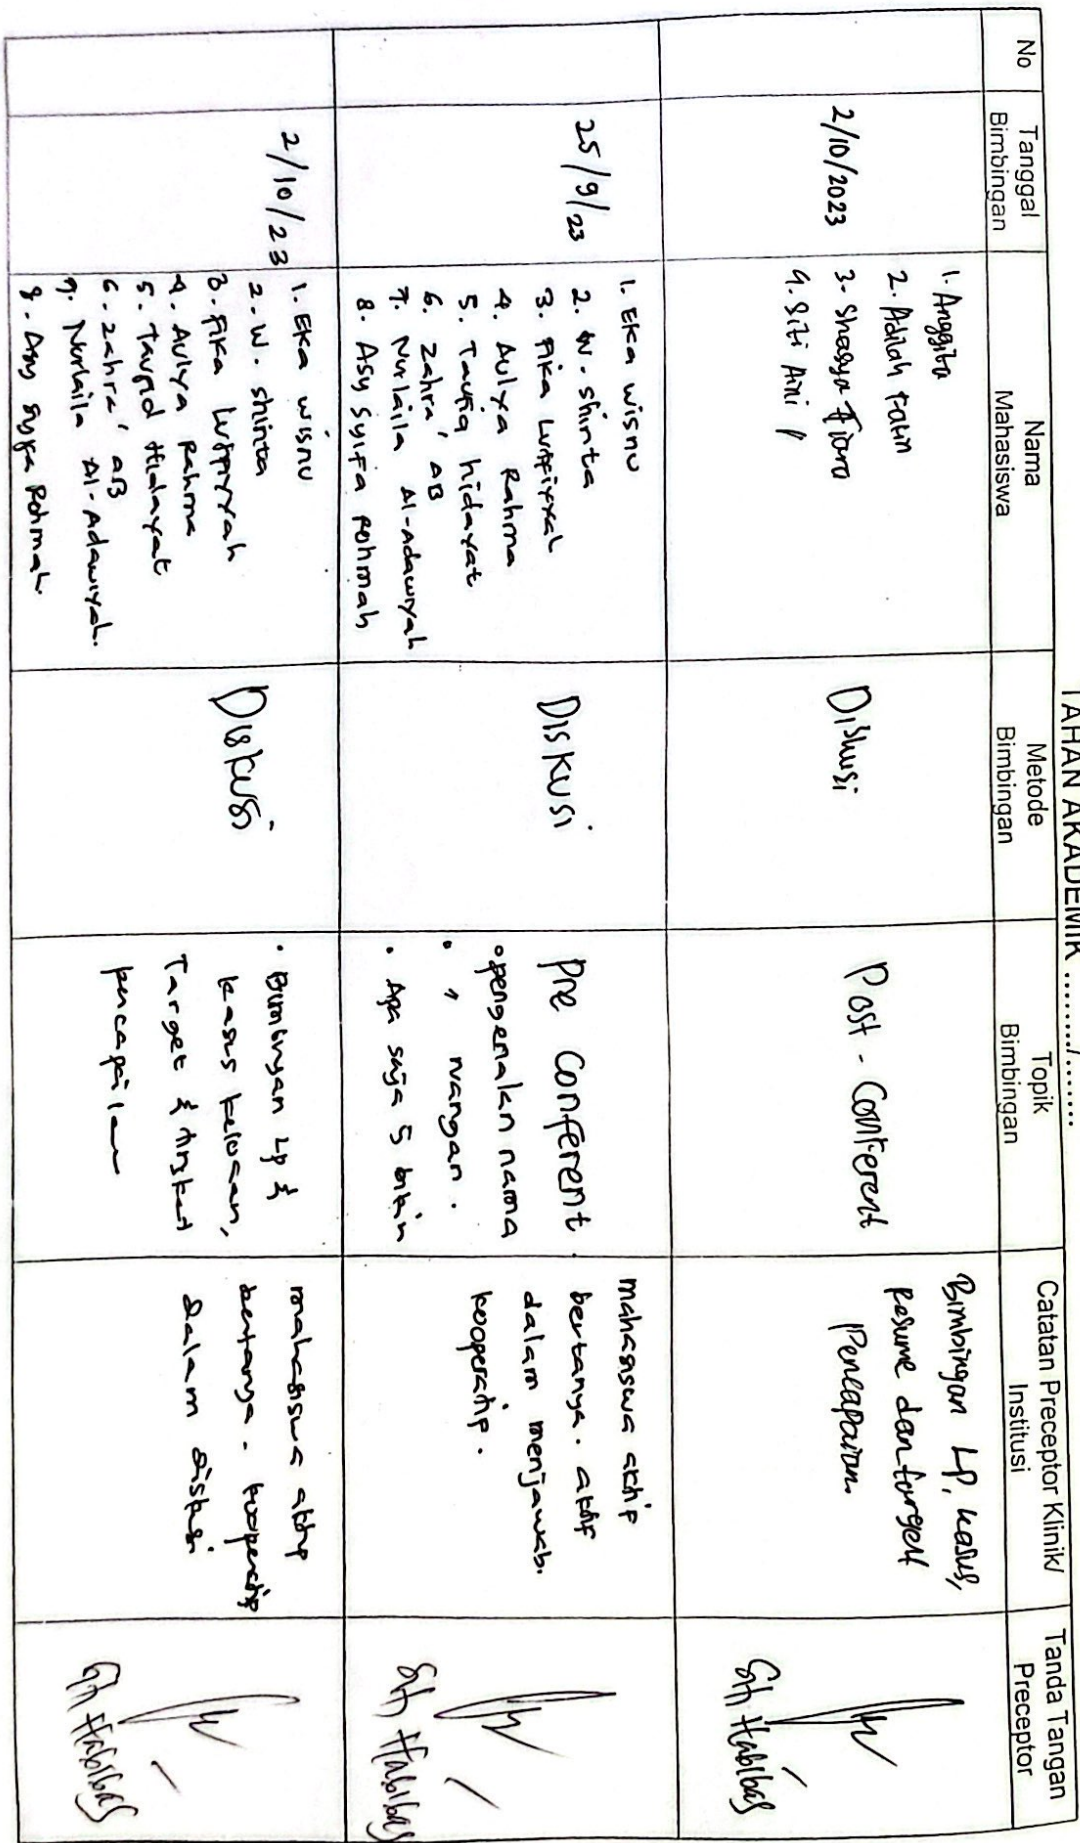 TAHAN AKADEMIK ........./........
No
Tanggal
Bimbingan
Nama
Mahasiswa
Metode
Bimbingan
Topik
Bimbingan
Catatan Preceptor Klinik/
Institusi
Tanda Tangan
Preceptor
2/10/2023
1. Anggita
2. Adilah
3. Shasya Tiara
4. Siti Aini
Diskusi
Post - Conferent
Bimbingan LP, kasus,
Resume dan target
Pencapaian.
Siti Habibas
25/9/23
1. Eka wisnu
2. W. shinta
3. Fika Lutfiyyah
4. Aulya Rahma
5. Taufiq hidayat
6. Zahra' AB
7. Nurlaila Al-Adawiyah
8. Asy Syifa Rohmah
Diskusi
Pre Conferent.
• pengenalan nama
• " ruangan.
• Apa saja 5
mahasiswa aktip
bertanya. aktif
dalam menjawab.
kooperatip.
Siti Habibas
2/10/23
1. Eka wisnu
2. W. shinta
3. Fika Lutfiyyah
4. Aulya Rahma
5. Taupid Hidayat
6. Zahra' AB
7. Nurlaila Al-Adawiyah.
8. Asy syifa Rohmah
Diskusi
• Bimbingan Lp &
kasus kelolaan,
Target &
pencapaian
mahasiswa aktip
bertanya - kooperatip
dalam diskusi
Siti Habibas